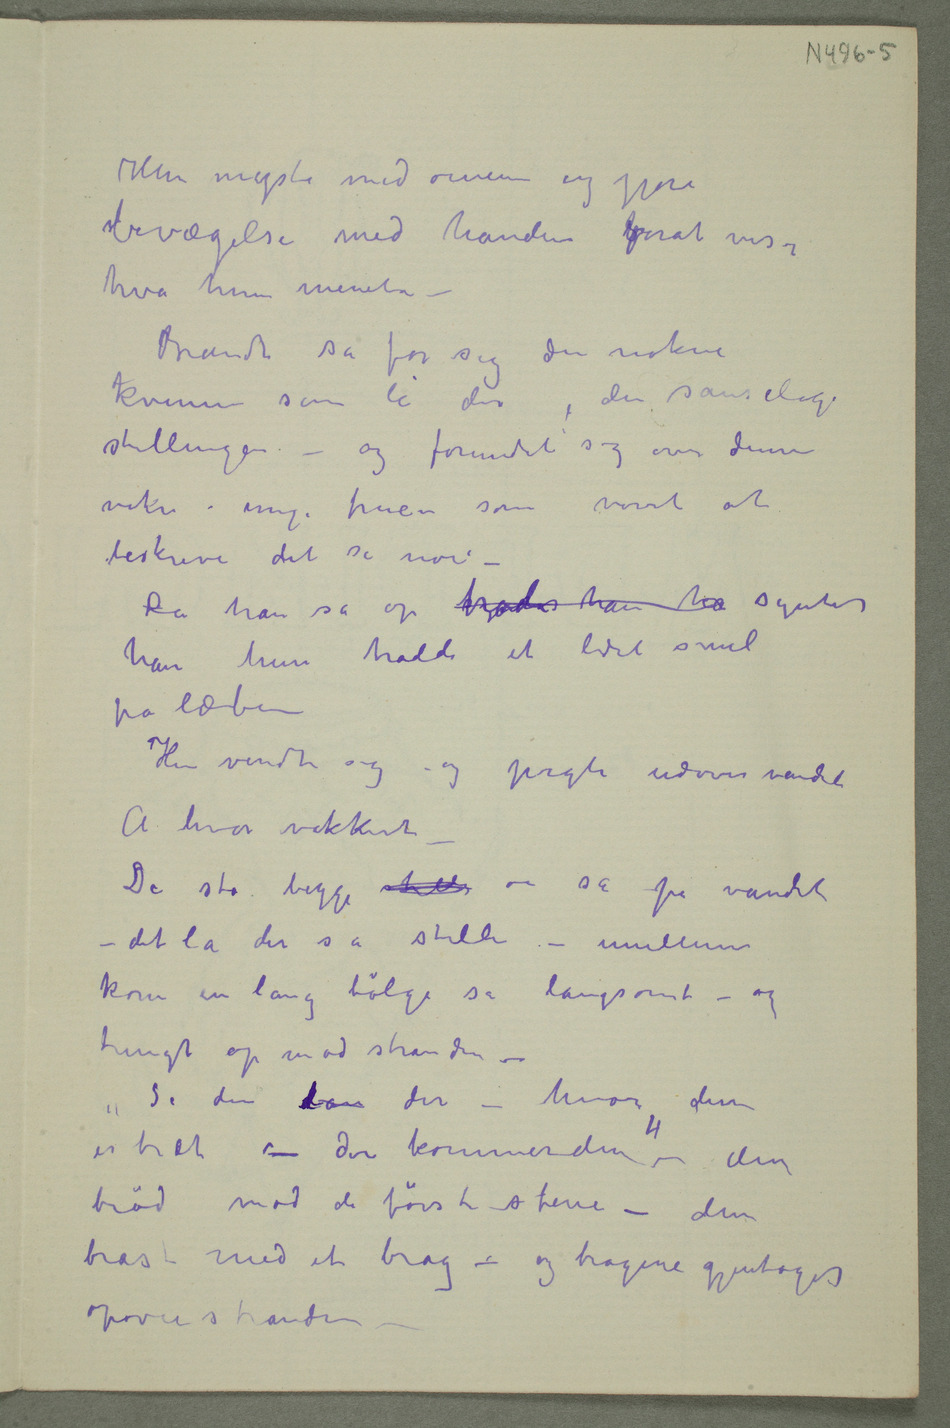 N496-5
Hun myste med øinene og gjore
bevægelse med handen forat vise
hva hun mente –
Brandt så for sig den nøkne
kvinne som lå der, den sanselige
stillingen – og forundret sig over denne
vakre unge fruen som vovet at
beskreve det så nøie –
Da han så op trodde han ha syntes
han hun hadde et lidet smil
på læben
Hun vendte sig – og pegte udover vandet
A hvor vakkert –
De sto begge stille og så på vandet
– det lå der så stille – imellem
kom en lang bølge så langsomt – og
tungt op mod stranden –
„Se den lan der – hvor den
er bræt – der kommer den" – den
brød mod de første stene – den
brast med et brag – og bragene gjentages
opover stranden –